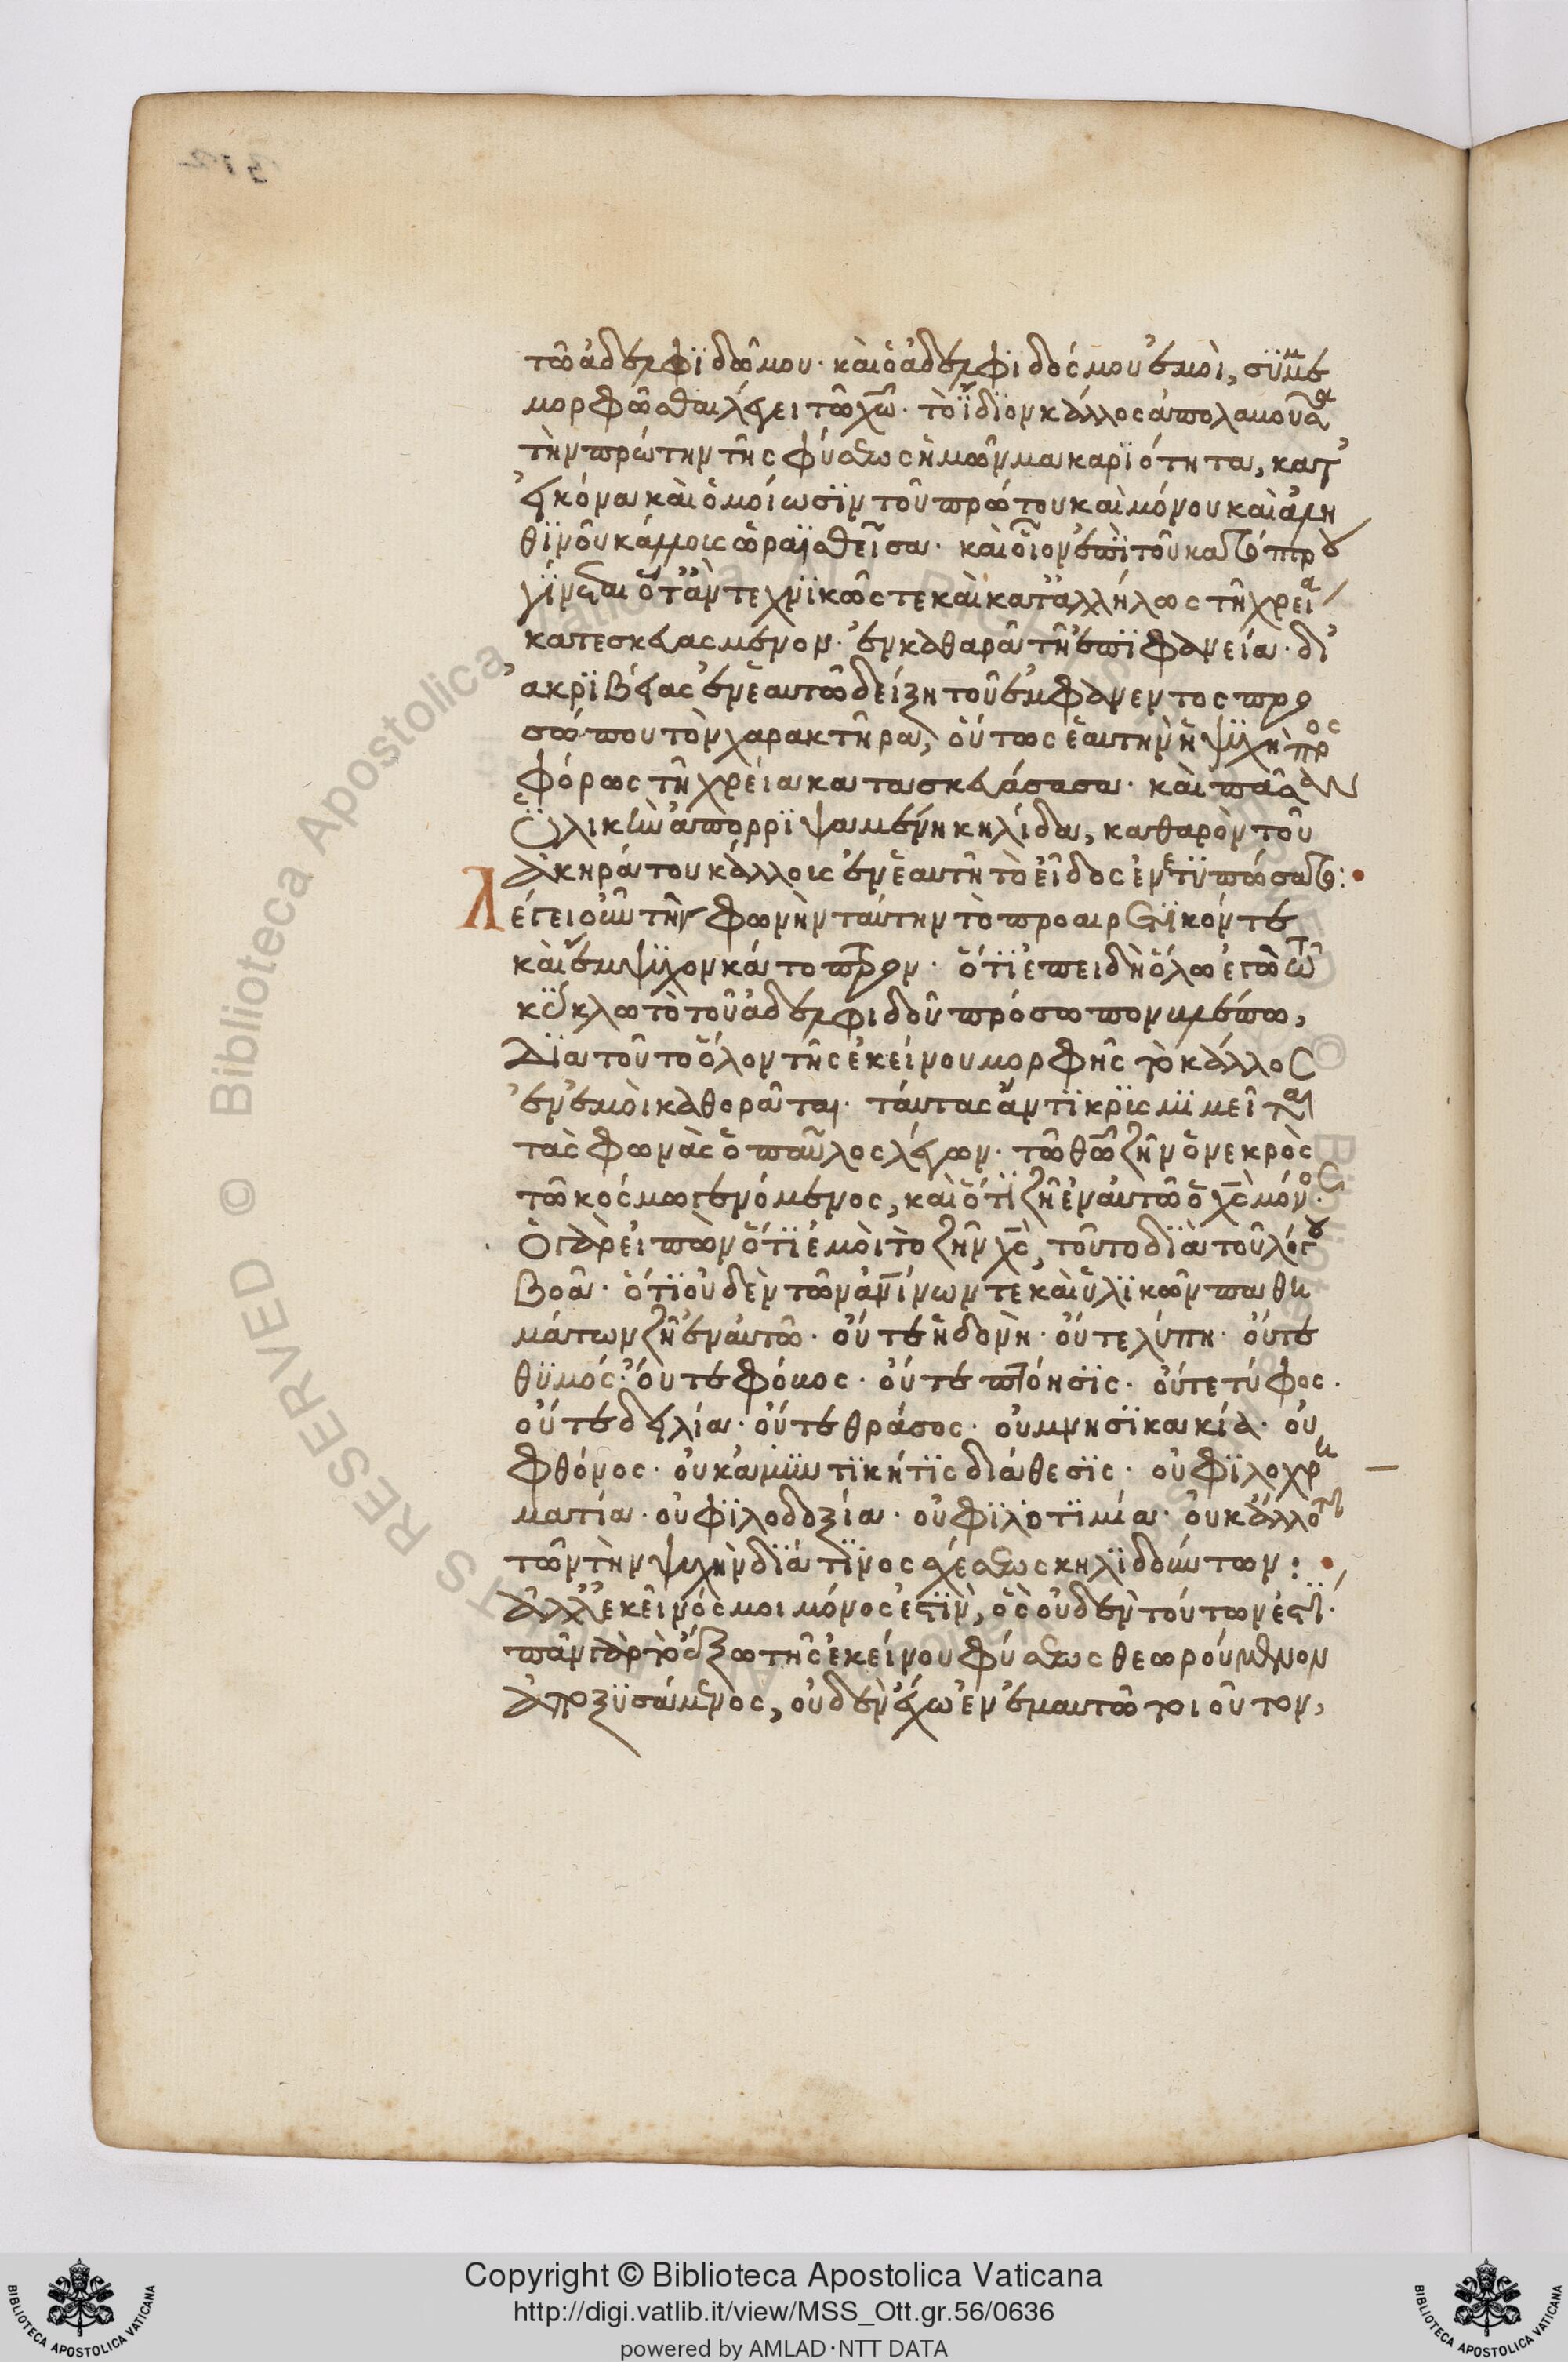 τῶ ἀδελφϊδῶ μου· καὶ ὁ ἀδελφιδός μου ἐμοὶ, σϋμμε
μορφῶσθαι λέγει τῶ χῶ· τὸ ἴ̈διον κάλλος ἀπολαμοῦσα
τὴν πρώτην τῆς φύσεως ἡμῶν μακαρϊότητα, κατ'
εἰκόνα καὶ ὁμοίωσϊν τοῦ πρώτου καὶ μόνου καὶ ἀλη
θϊνοῦ κάλλοις ὡραϊσθεῖσα· καὶ οἷον ἐπὶ τοῦ κατόπτρου
γίνεται ὅτ' ἂν τεχνϊκῶς τε καὶ κατ' ἀλλήλως τῆ χρεία
κατεσκευασμένον· ἐν καθαρᾶ τῆ ἐπϊφανεία· δι'
ἀκρϊβείας ἐν ἑαυτῶ δείξη τοῦ ἐμφανεντος προ
σώπου τὸν χαρακτῆρα, οὕτως ἑαυτὴν ἡ ψϋχὴ προς
φόρως τῆ χρεία κατασκευάσασα· καὶ πᾶσαν
ὑλικὴν ἀπορρϊψαμένη κηλίδα, καθαρὸν τοῦ
ἀκηράτου κάλλοις ἐν ἑαυτῆ τὸ εἶδος ἐνετϋπώσατο:
Λέγει οὖν τὴν φωνὴν ταύτην τὸ προαιρετϊκόν τε
καὶ ἔμψϋχον κάτοπτρον· ὅτϊ ἐπειδὴ ὅλω ἐγὼ τῶ
κϋκλω τὸ τοῦ ἀδελφιδοῦ πρόσωπον βλέπω,
Δϊα τοῦτο ὅλον τῆς ἐκείνου μορφῆς τὸ κάλλος
ἐν ἐμοὶ καθορᾶται· ταύτας ἄντϊκρϋς μϊμεῖται
τὰς φωνὰς ὁ παῦλος λέγων· τῶ θῶ ζῆν ὁ νεκρὸς
τῶ κόσμω γενόμενος, καὶ ὅτϊ ζῆ ἐν αυτῶ ὁ χς μόνος·
Ὁ γὰρ εἰπὼν ὅτϊ ἐμοὶ τὸ ζῆν χς, τοῦτο δϊὰ τοῦ λόγου
βοᾶ· ὅτϊ οὐδὲν τῶν ἀνίνων τὲ καὶ ὑλϊκῶν παθη
μάτων ζῆ ἐν αυτῶ· οὔτε ἡδονὴ· οὔτε λύπη· οὔτε
θϋμός· οὔτε φόβος· οὔτε πτόησϊς· οὔτε τύφος·
οὔτε δειλία· οὔτε θράσος· οὐ μνησϊκακία· οὐ
φθόνος· οὐκ ἀμϋντϊκή τϊς διάθεσϊς· οὐ φϊλοχρη
ματία· οὐ φϊλοδοξία· οὐ φϊλοτϊμία· οὐκ ἄλλό τι
τῶν τὴν ψυχὴν δϊά τϊνος σχέσεως κηλϊδούντων:
Ἀλλ' ἐκεῖνός μοι μόνος ἐστϊν, ὃς οὐδὲν τούτων ἐστϊ·
πᾶν γὰρ τὸ ἔξω τῆς ἐκείνου φύσεως θεωρούμενον
ἀποξϋσάμενος, οὐδὲν ἔχω ἐν ἐμαυτῶ τοιοῦτον,
Copyright © Biblioteca Apostolica Vaticana
http://digi.vatlib.it/view/MSS_Ott.gr.56/0636
powered by AMLAD·NTT DATA
BIBLIOTECA APOSTOLICA VATICANA
BIBLIOTECA APOSTOLICA VATICANA